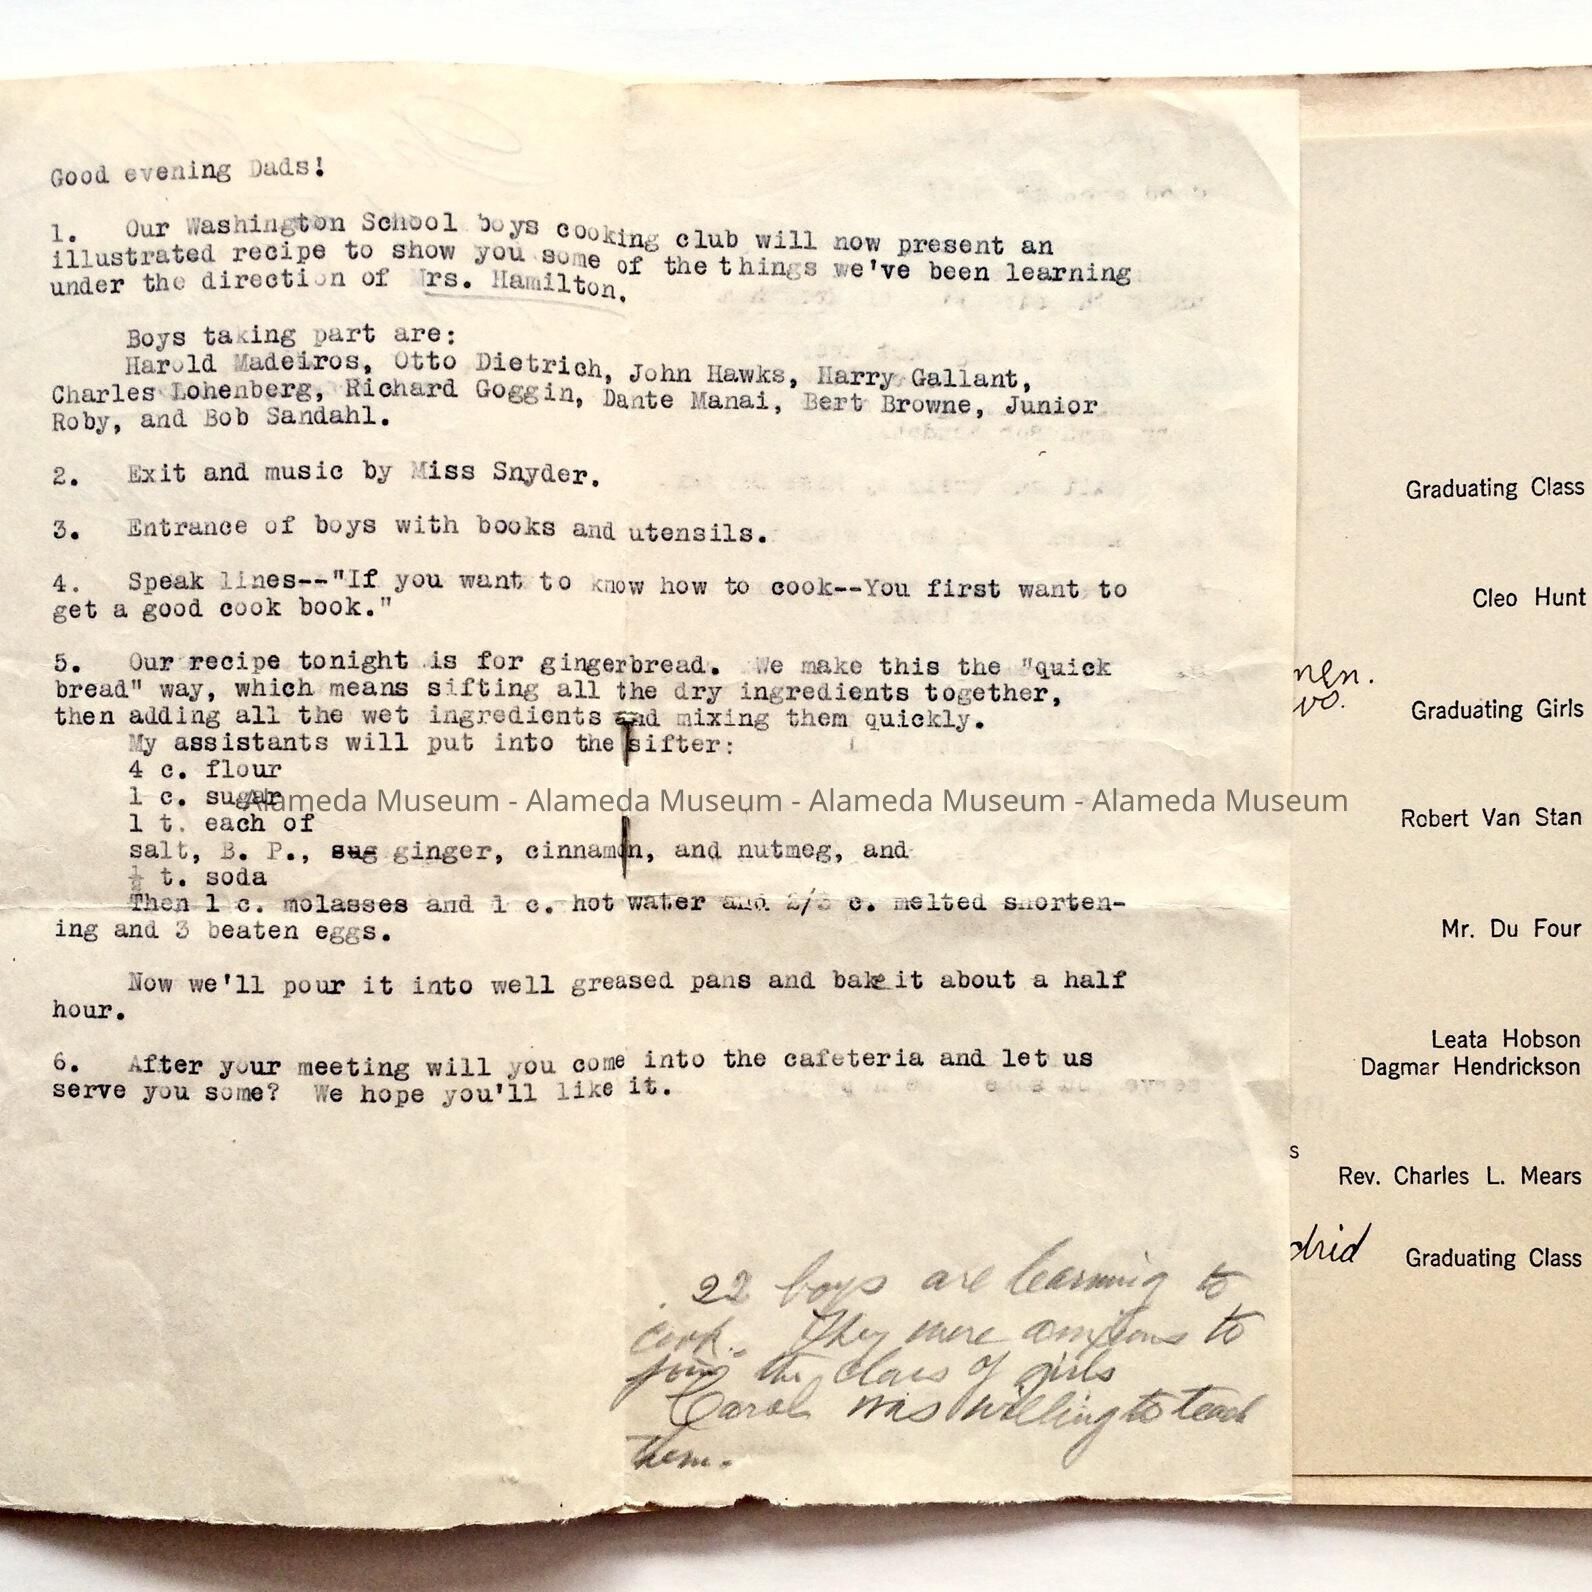 Good evening Dads!
1. Our Washington School boys cooking club will now present an
illustrated recipe to show you some of the things we've been learning
under the direction of Mrs. Hamilton.
Boys taking part are:
Harold Madeiros, Otto Dietrich, John Hawks, Harry Gallant,
Charles Lohenberg, Richard Goggin, Dante Manai, Bert Browne, Junior
Roby, and Bob Sandahl.
2. Exit and music by Miss Snyder.
3. Entrance of boys with books and utensils.
4. Speak lines--"If you want to know how to cook--You first want to
get a good cook book."
5. Our recipe tonight is for gingerbread. We make this the "quick
bread" way, which means sifting all the dry ingredients together,
then adding all the wet ingredients and mixing them quickly.
My assistants will put into the sifter:
4 c. flour
1 c. sugar
1 t. each of
salt, B. P., sug ginger, cinnamon, and nutmeg, and
½ t. soda
Then 1 c. molasses and 1 c. hot water and 2/3 c. melted shorten-
ing and 3 beaten eggs.
Now we'll pour it into well greased pans and bake it about a half
hour.
6. After your meeting will you come into the cafeteria and let us
serve you some? We hope you'll like it.
22 boys are learning to
cook. They were anxious to
join the class of girls
Carol was willing to teach
them.
Graduating Class
Cleo Hunt
men.
Graduating Girls
Robert Van Stan
Mr. Du Four
Leata Hobson
Dagmar Hendrickson
s
Rev. Charles L. Mears
drid
Graduating Class
Alameda Museum - Alameda Museum - Alameda Museum - Alameda Museum